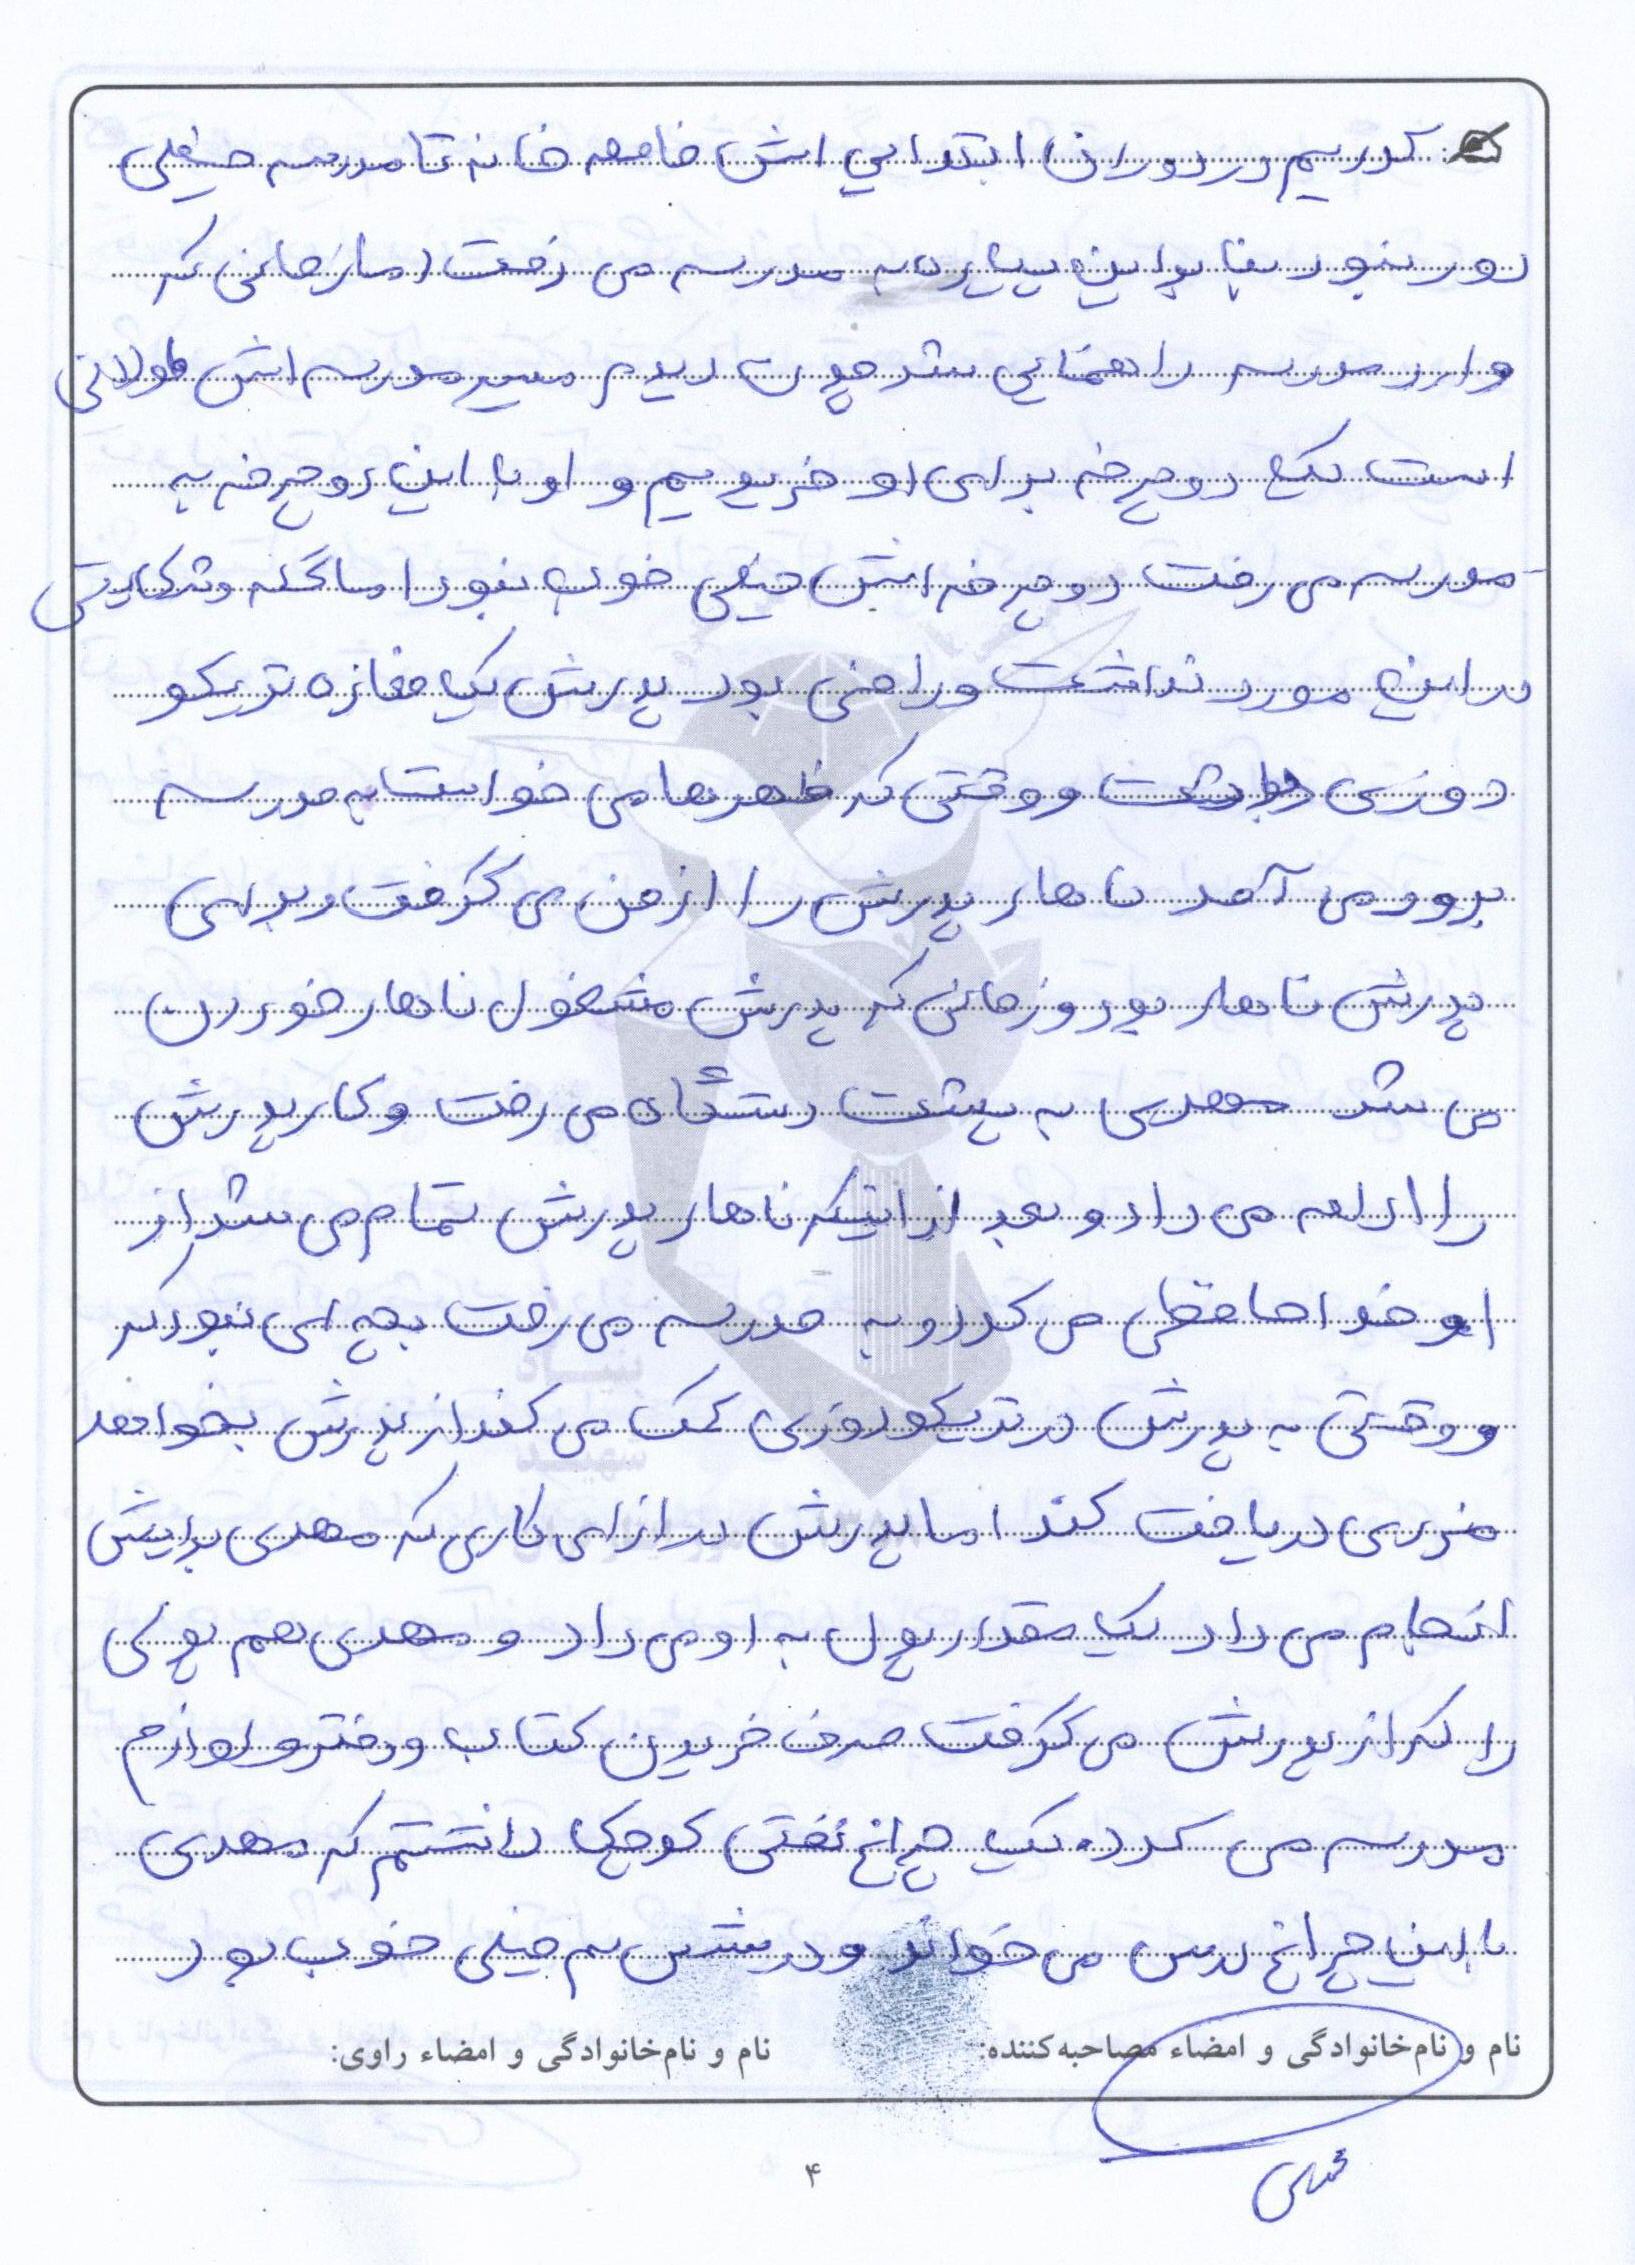 کردیم در دوران ابتدایی اش فاصله خانه تا مدرسه خیلی
دور نبود بنابراین پیاده به مدرسه می رفت اما زمانی که
وارد مدرسه راهنمایی شد چون دیدم مسیر مدرسه اش طولانی
است یک دوچرخه برای او خریدیم و او با این دوچرخه به
مدرسه می رفت دوچرخه اش خیلی خوب نبود اما گله و شکایتی
در این مورد نداشت و راضی بود پدرش یک مغازه تریکو
دوزی داشت و وقتی که ظهرها می خواست به مدرسه
برود می آمد ناهار پدرش را از من می گرفت و برای
پدرش ناهار می برد و زمانی که پدرش مشغول ناهار خوردن
می شد مهدی به پشت دستگاه می رفت و کار پدرش
را ادامه می داد و بعد از اینکه ناهار پدرش تمام می شد از
او خداحافظی می کرد و به مدرسه می رفت بچه ای نبود که
وقتی به پدرش در تریکو دوزی کمک می کند از پدرش بخواهد
مزدی دریافت کند اما پدرش در ازای کاری که مهدی برایش
انجام می داد یک مقدار پول به او می داد و مهدی هم پولی
را که از پدرش می گرفت صرف خریدن کتاب و دفتر و لوازم
مدرسه می کرد. یک چراغ نفتی کوچک داشتیم که مهدی
با این چراغ درس می خواند و درسش هم خیلی خوب بود
نام و نام‌خانوادگی و امضاء مصاحبه‌کننده:
نام و نام‌خانوادگی و امضاء راوی:
۴